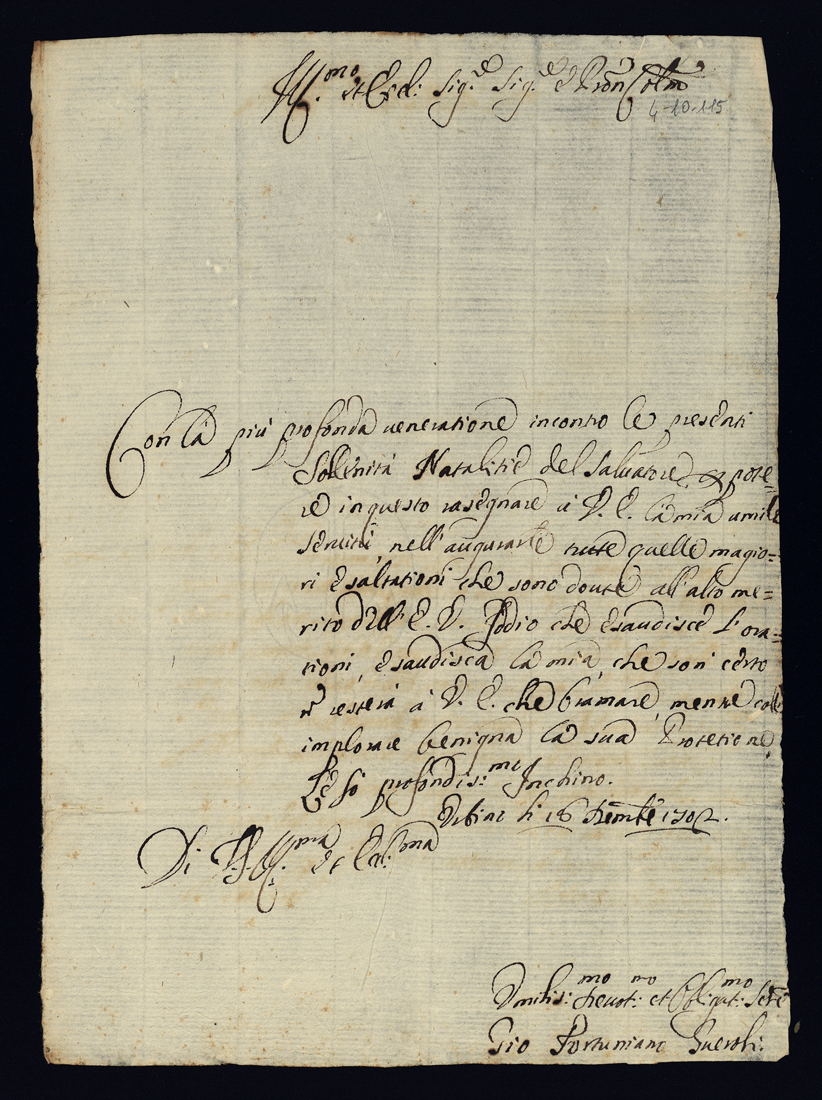 Ill.mo et Ecc.: Sig.re Sig.re e Pron Colmo
4-10-115
Con la più profonda ueneratione incontro le presenti
Sollenità Natalitie del Saluatore, p pote=
re in questo rasegnare à V. E. la mia umile
seruitù, nell'augurarle tutte quelle magio=
ri esaltationi che sono doute all'alto me=
rito dell'E. V. Iddio che esaudisce l'ora=
tioni, esaudisca la mia, che son certo
n resterà à V. E. che bramare, mentre coll
implorare benigna la sua Protetione
Le fò profondis:mo Inchino.
Urbino li 18 Xembre 1702.
Di V. Ill.ma et Ecc:ma
Vmilis:mo Deuot:mo et Obligat:mo Sere
Gio Fortuniano